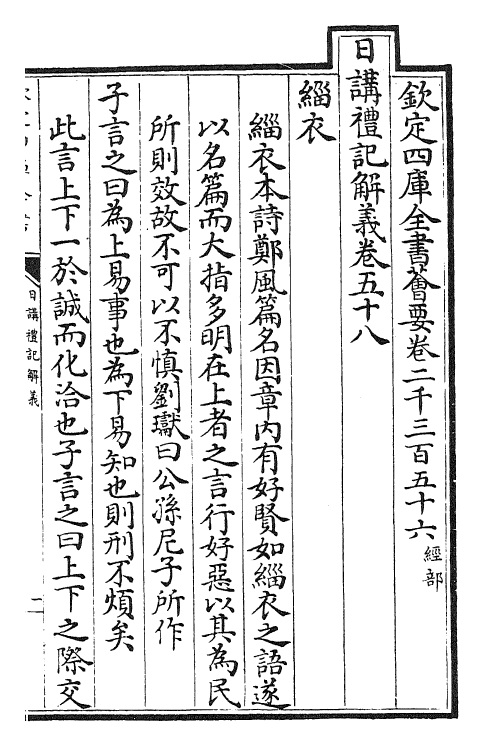 欽定四庫全書薈要卷二千三百五十六經部
日講禮記解義卷五十八
緇衣
緇衣本詩鄭風篇名因章内有好賢如緇衣之語遂
以名篇而大指多明在上者之言行好惡以其為民
所則效故不可以不慎劉瓛曰公孫尼子所作
子言之曰為上易事也為下易知也則刑不煩矣
此言上下一於誠而化洽也子言之曰上下之際交
日講禮記解義